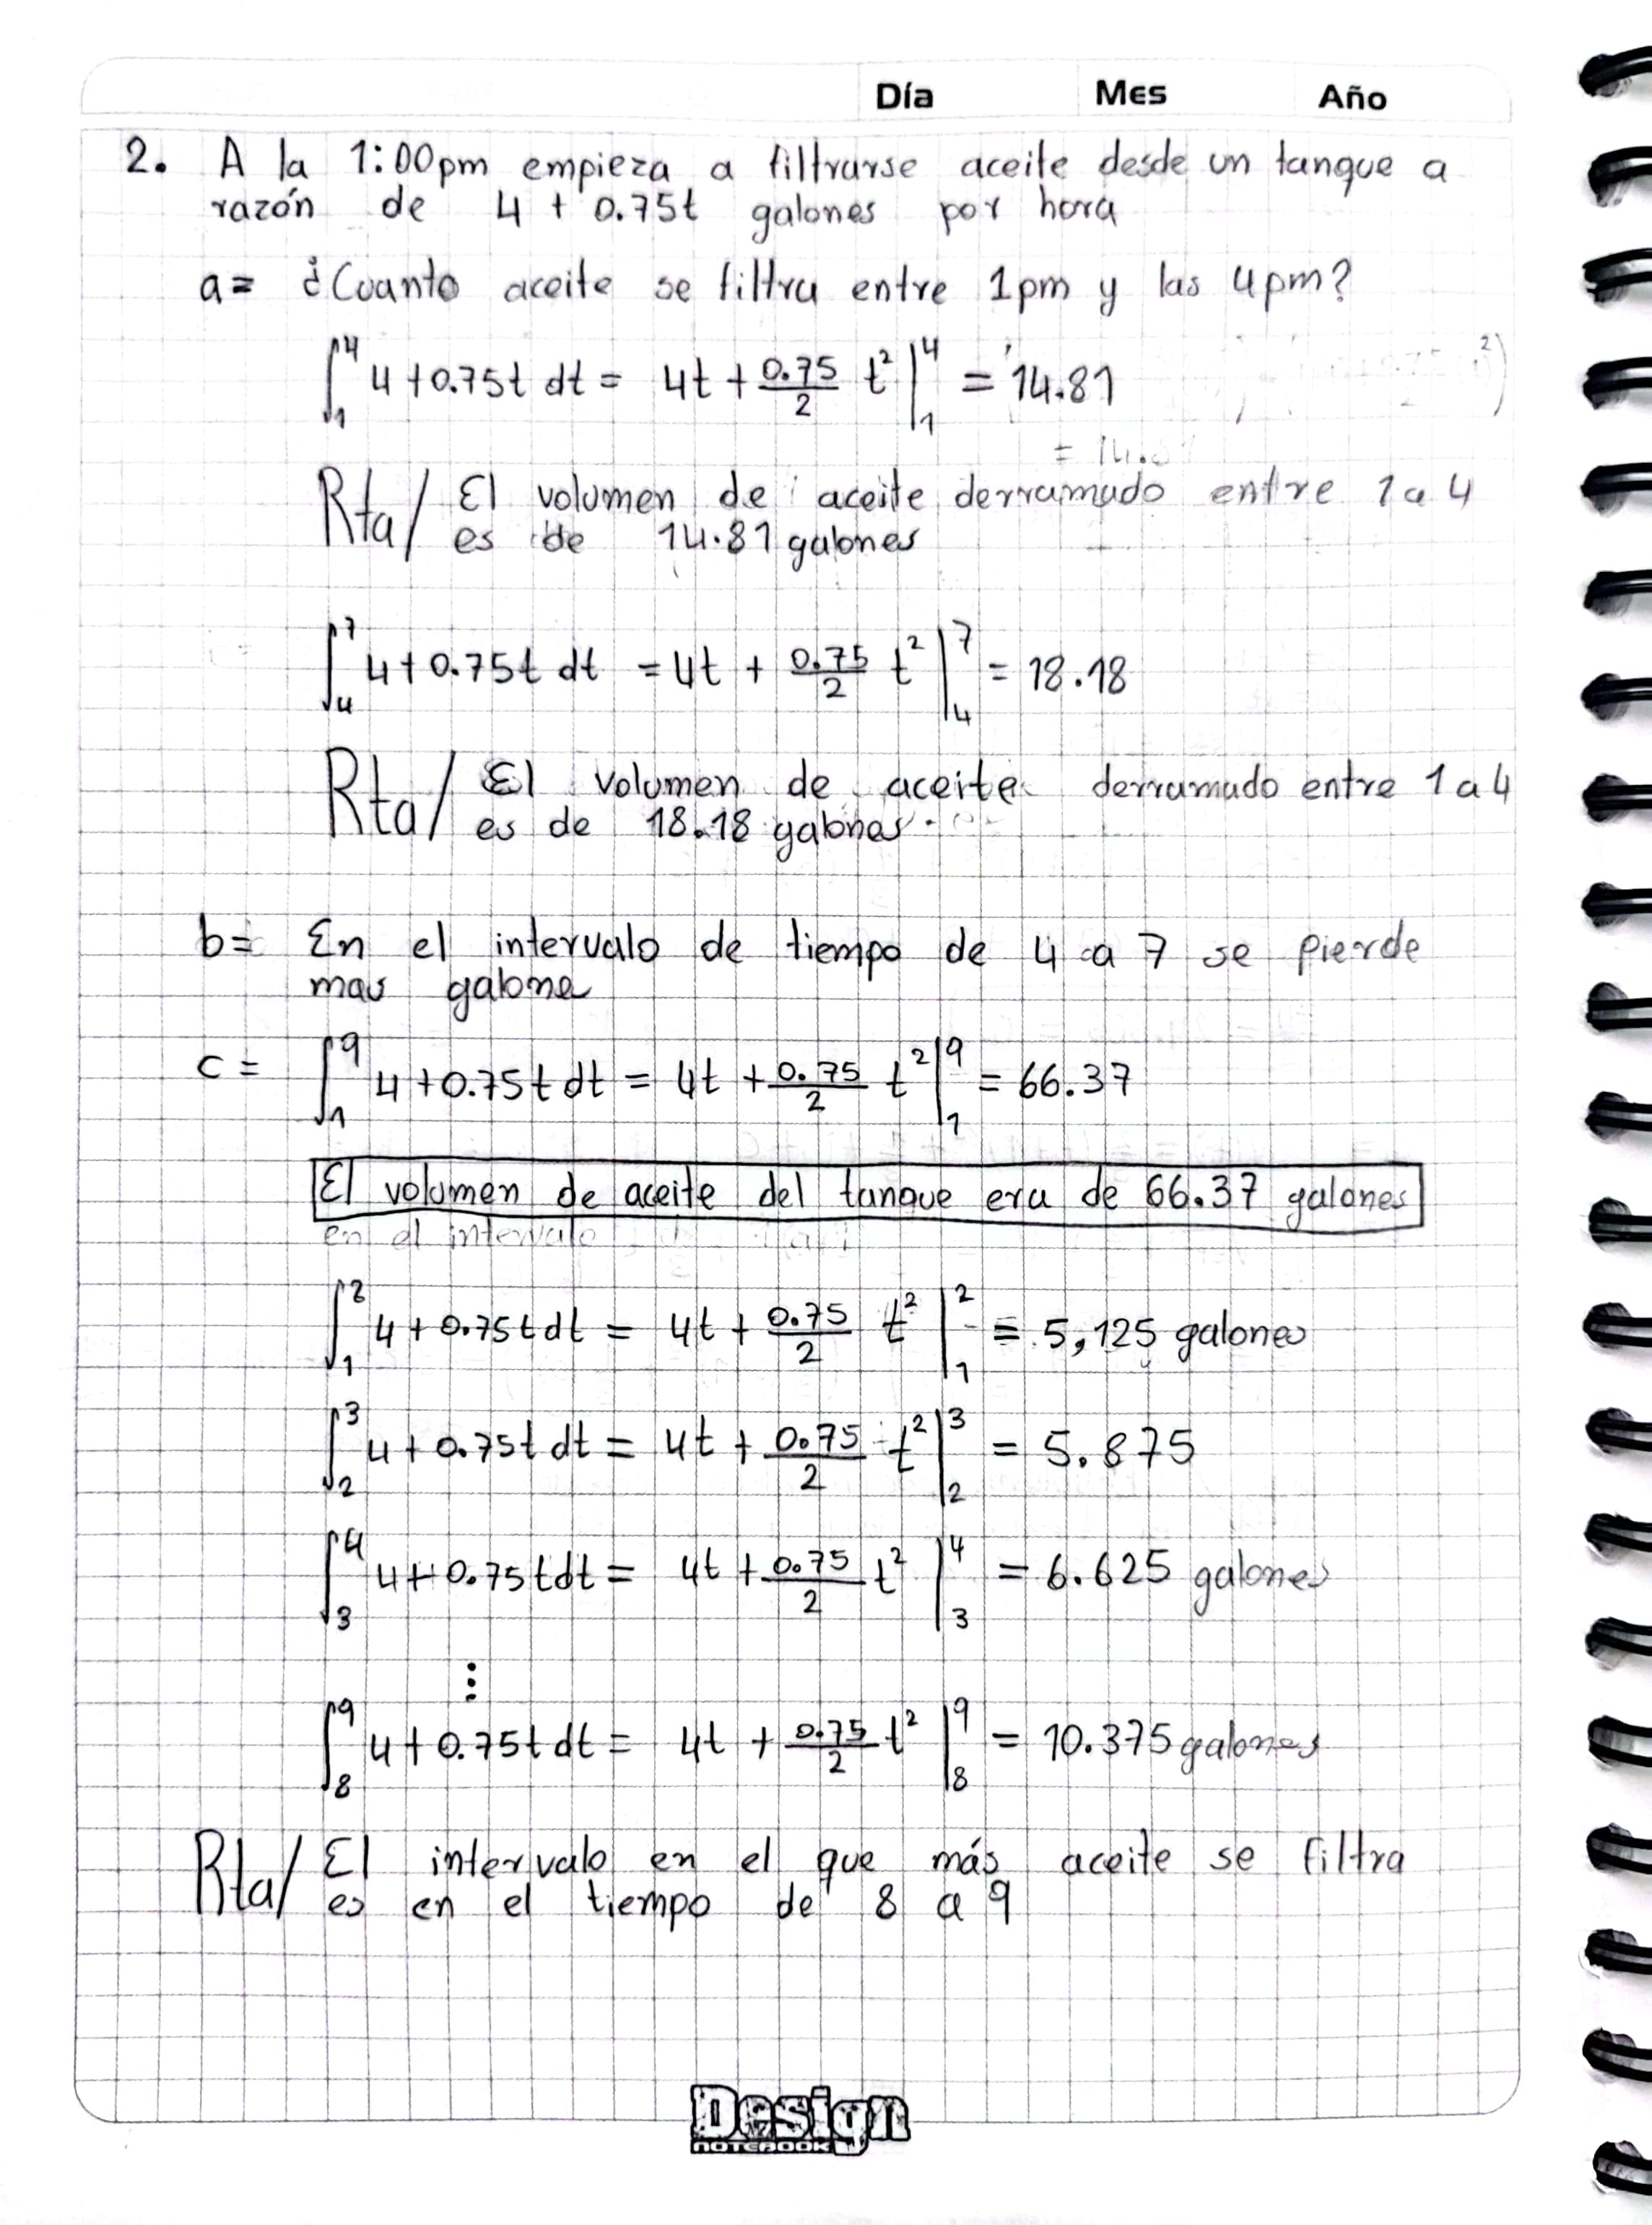 Día Mes Año
2. A la 1:00pm empieza a filtrarse aceite desde un tanque a
razón de 4 + 0.75t galones por hora
a= ¿Cuanto aceite se filtra entre 1pm y las 4pm?
∫₁⁴ 4+0.75t dt = 4t + 0.75/2 t² |₁⁴ = 14.81
Rta/ El volumen de aceite derramado entre 1 a 4
es de 14.81 galones
∫₄⁷ 4+0.75t dt = 4t + 0.75/2 t² |₄⁷ = 18.18
Rta/ El volumen de aceite derramado entre 1 a 4
es de 18.18 galones
b= En el intervalo de tiempo de 4 a 7 se pierde
mas galone
c= ∫₁⁹ 4+0.75t dt = 4t + 0.75/2 t² |₁⁹ = 66.37
El volumen de aceite del tanque era de 66.37 galones
en el intervalo
∫₁² 4+0.75t dt = 4t + 0.75/2 t² |₁² = 5,125 galones
∫₂³ 4+0.75t dt = 4t + 0.75/2 t² |₂³ = 5.875
∫₃⁴ 4+0.75t dt = 4t + 0.75/2 t² |₃⁴ = 6.625 galones
⋮
∫₈⁹ 4+0.75t dt = 4t + 0.75/2 t² |₈⁹ = 10.375 galones
Rta/ El intervalo en el que más aceite se filtra
es en el tiempo de 8 a 9
Design
NOTEBOOK